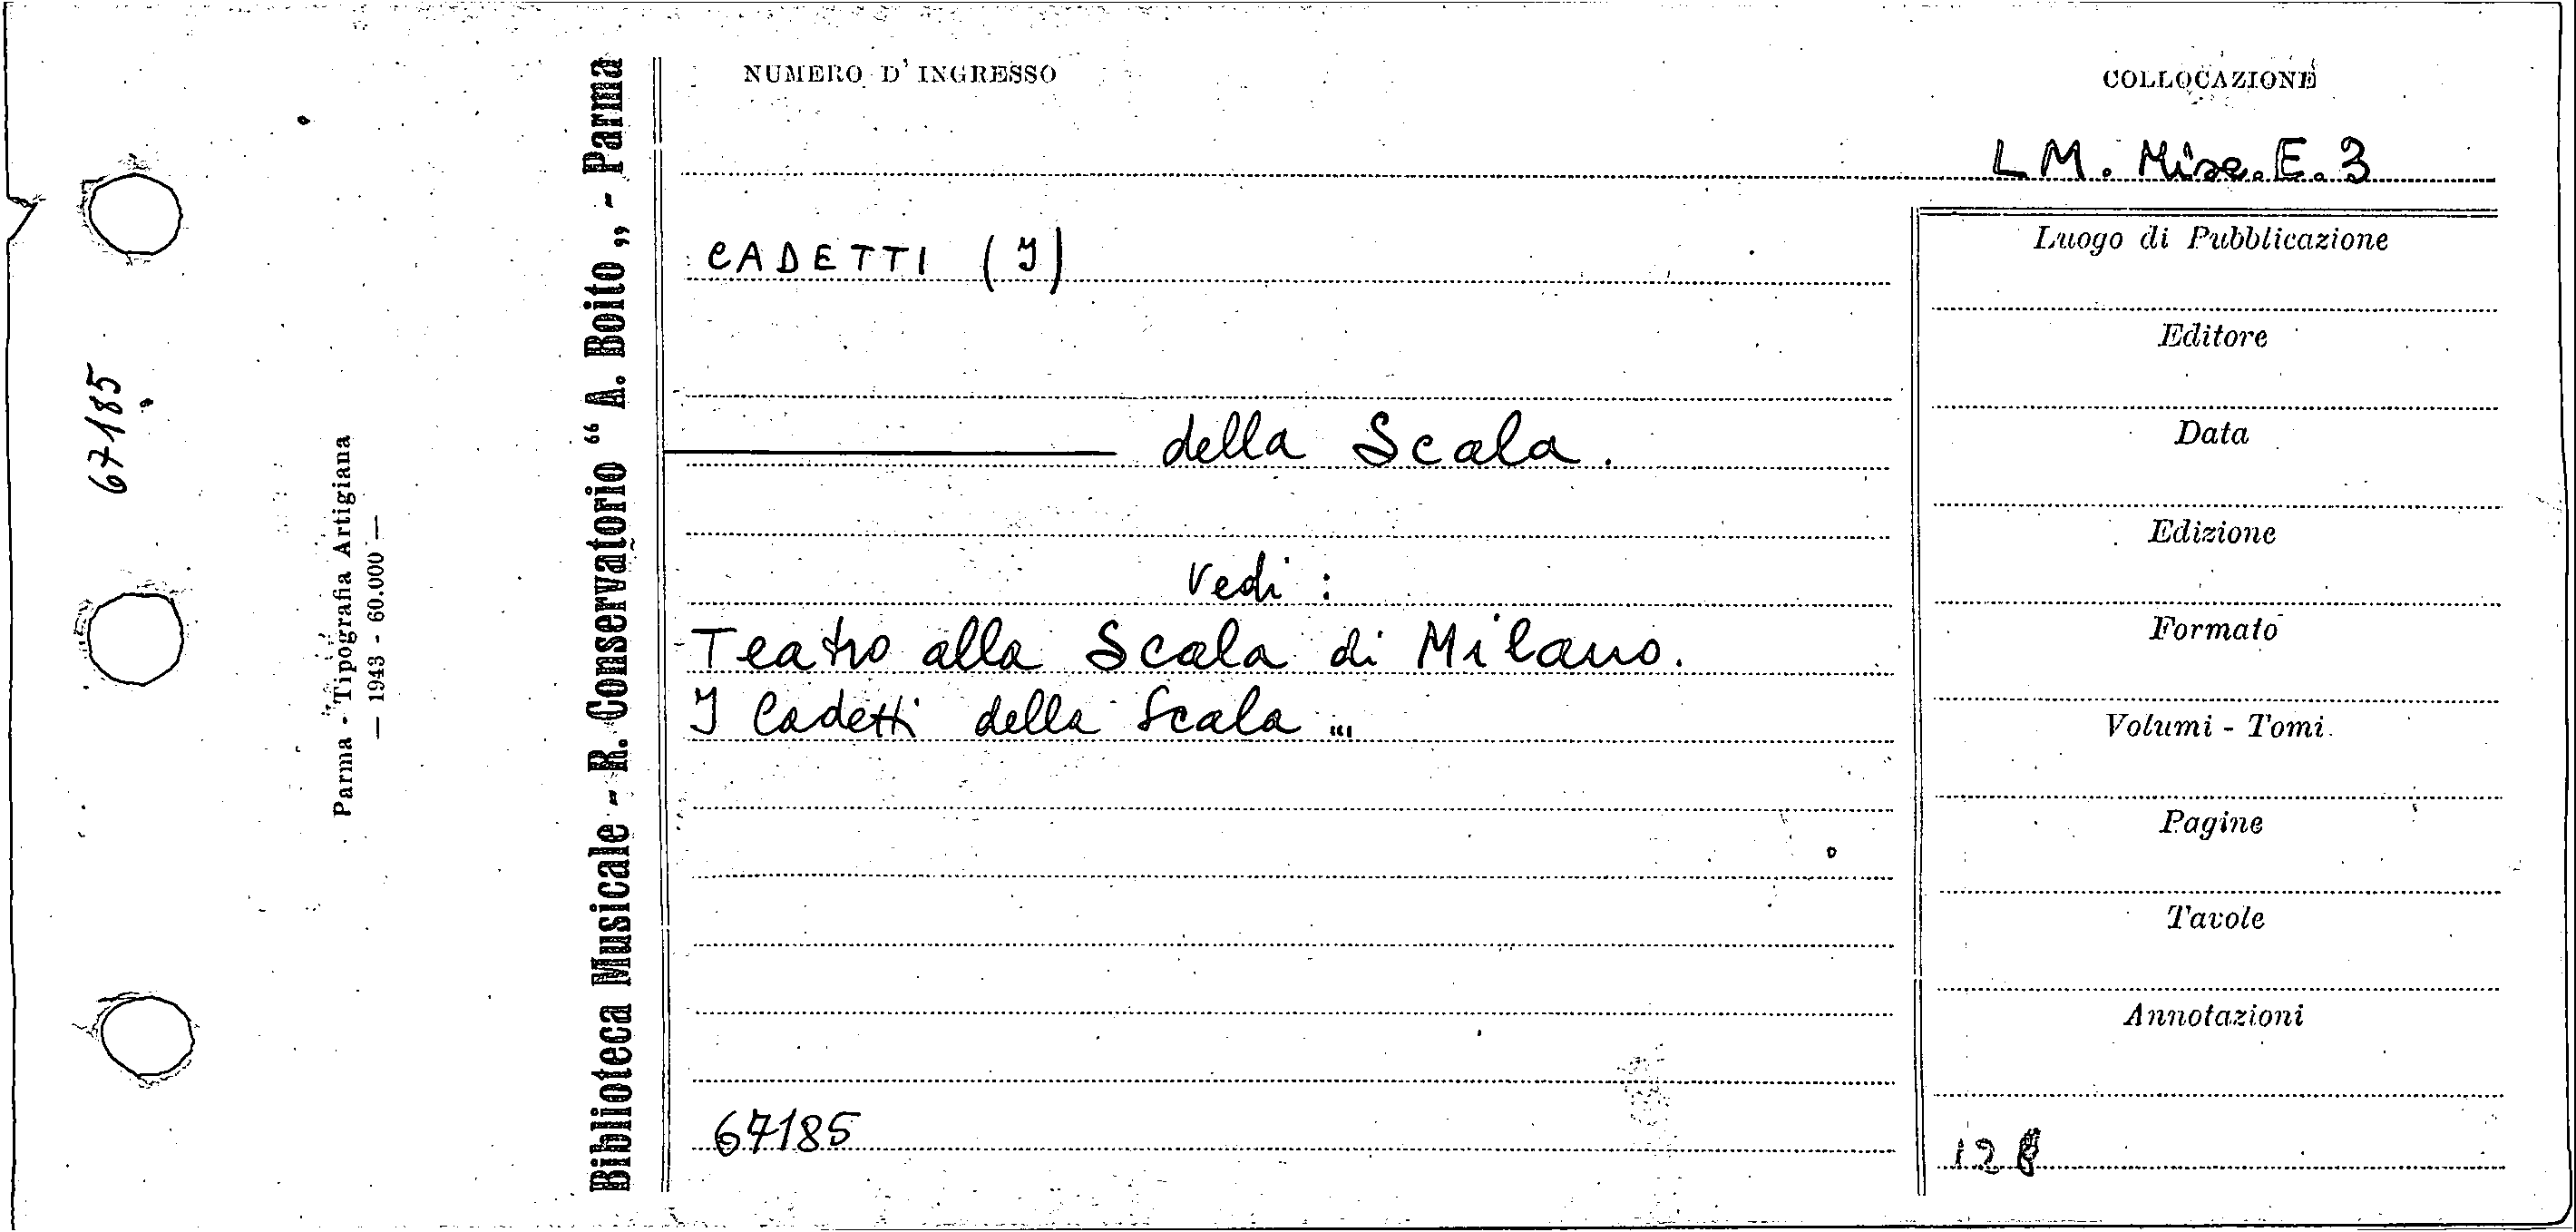 67185
Parma - Tipografia Artigiana
— 1943 - 60.000 —
Biblioteca Musicale - R. Conservatorio “ A. Boito „ - Parma
NUMERO D' INGRESSO
COLLOCAZIONE
LM. Misc. E. 3
CADETTI (I)
della Scala.
Vedi:
Teatro alla Scala di Milano.
I Cadetti della Scala ...
67185
Luogo di Pubblicazione
Editore
Data
Edizione
Formato
Volumi - Tomi
Pagine
Tavole
Annotazioni